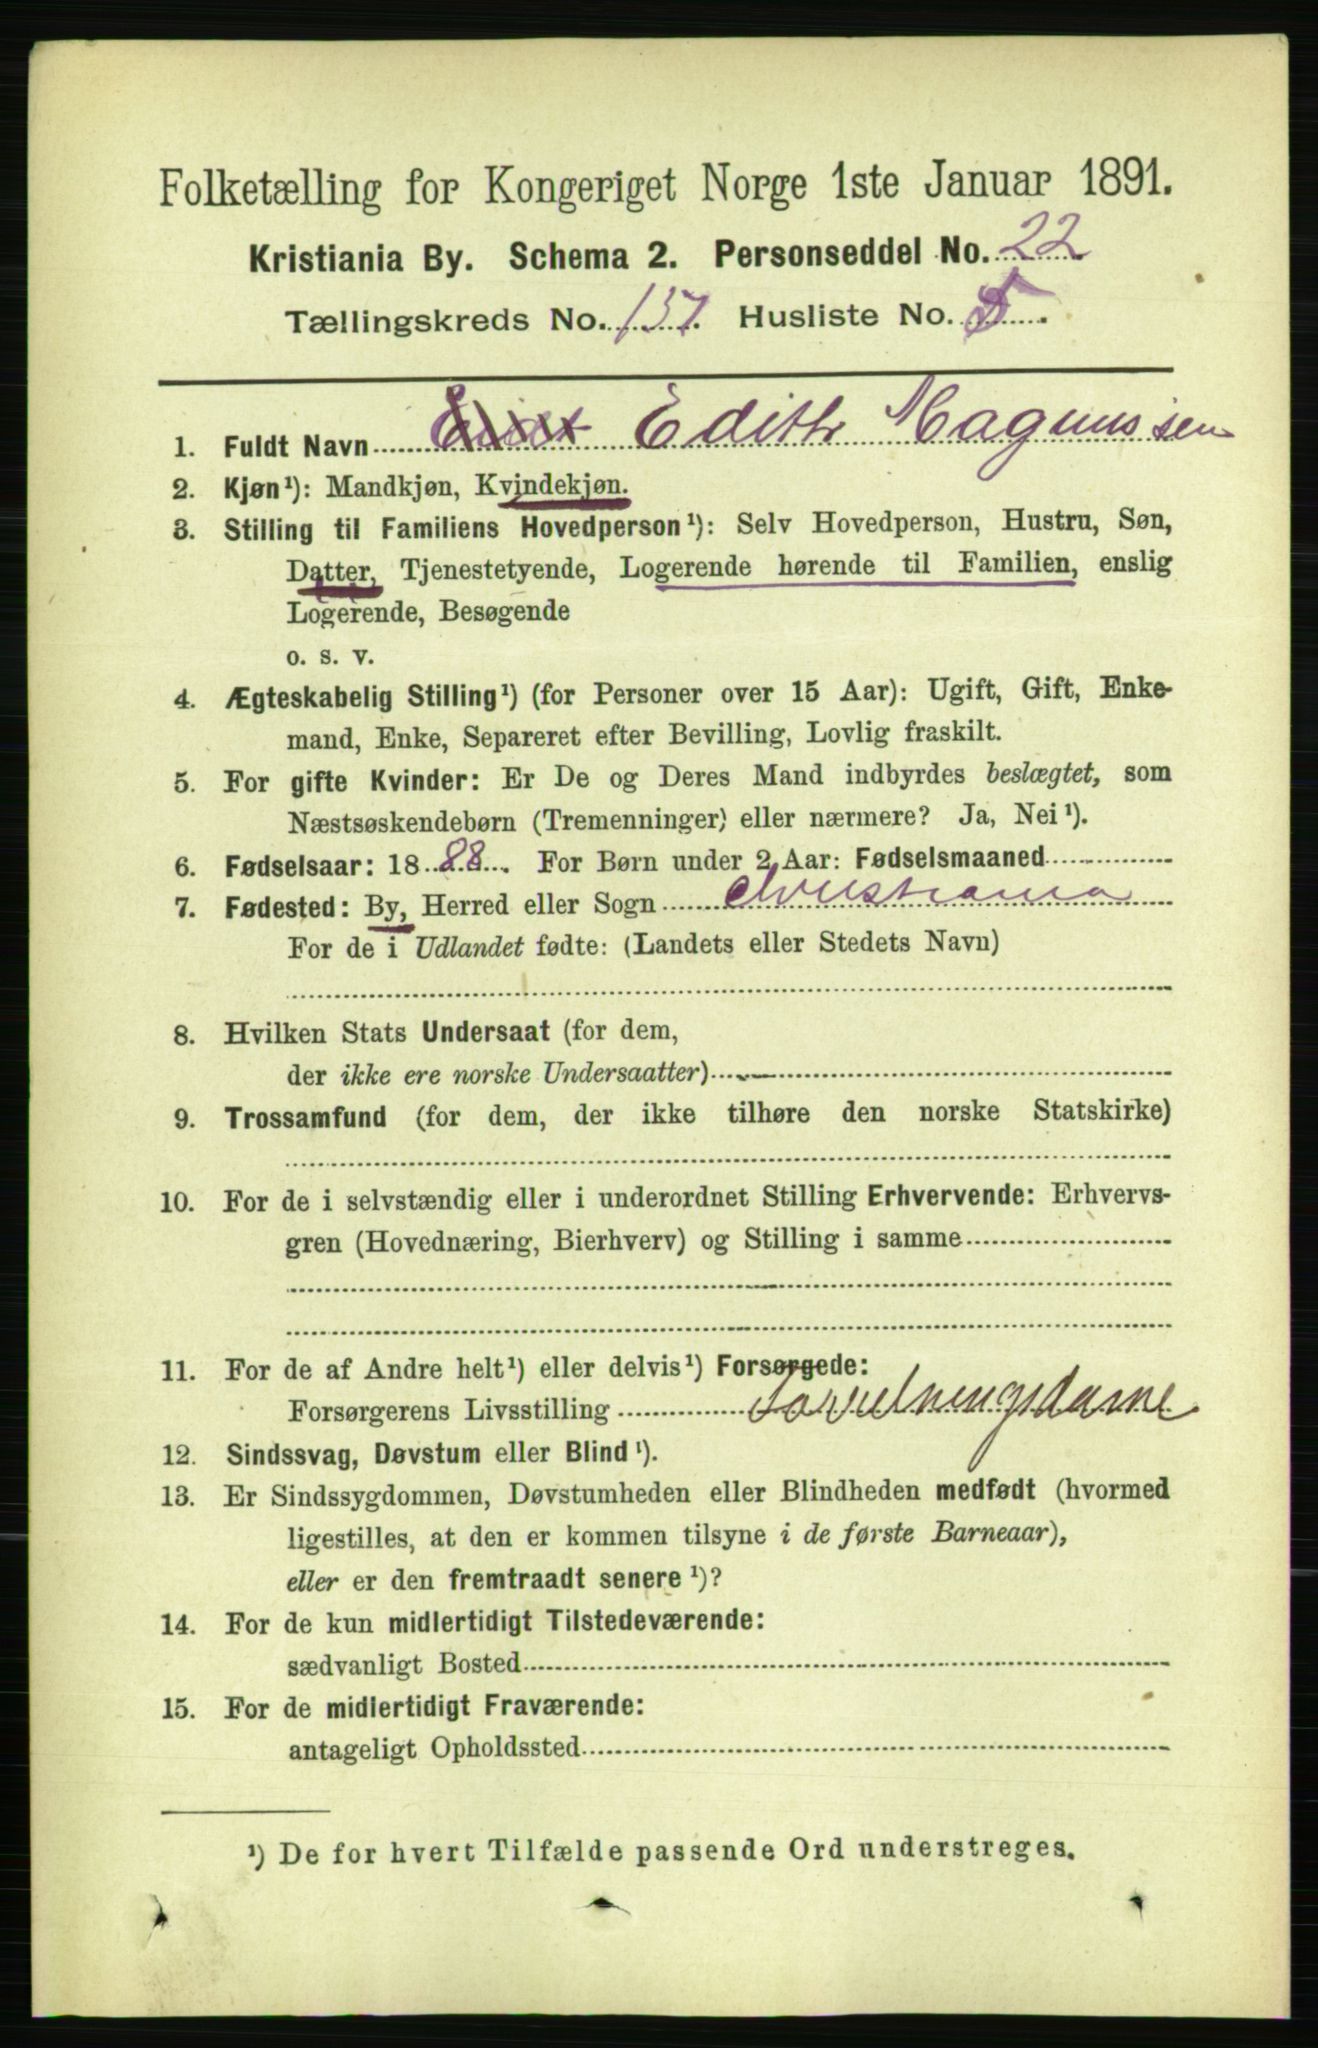 Folketælling for Kongeriget Norge 1ste Januar 1891.
Kristiania By. Schema 2. Personseddel No. 22
Tællingskreds No. 157. Husliste No. 5
1. Fuldt Navn Edith Magnussen
2. Kjøn¹): Mandkjøn, Kvindekjøn.
3. Stilling til Familiens Hovedperson¹): Selv Hovedperson, Hustru, Søn,
Datter, Tjenestetyende, Logerende hørende til Familien, enslig
Logerende, Besøgende
o. s. v.
4. Ægteskabelig Stilling¹) (for Personer over 15 Aar): Ugift, Gift, Enke-
mand, Enke, Separeret efter Bevilling, Lovlig fraskilt.
5. For gifte Kvinder: Er De og Deres Mand indbyrdes beslægtet, som
Næstsøskendebørn (Tremenninger) eller nærmere? Ja, Nei¹).
6. Fødselsaar: 1888. For Børn under 2 Aar: Fødselsmaaned
7. Fødested: By, Herred eller Sogn Christiania
For de i Udlandet fødte: (Landets eller Stedets Navn)
8. Hvilken Stats Undersaat (for dem,
der ikke ere norske Undersaatter)
9. Trossamfund (for dem, der ikke tilhøre den norske Statskirke)
10. For de i selvstændig eller i underordnet Stilling Erhvervende: Erhvervs-
gren (Hovednæring, Bierhverv) og Stilling i samme
11. For de af Andre helt¹) eller delvis¹) Forsørgede:
Forsørgerens Livsstilling
12. Sindssvag, Døvstum eller Blind¹).
13. Er Sindssygdommen, Døvstumheden eller Blindheden medfødt (hvormed
ligestilles, at den er kommen tilsyne i de første Barneaar),
eller er den fremtraadt senere¹)?
14. For de kun midlertidigt Tilstedeværende:
sædvanligt Bosted
15. For de midlertidigt Fraværende:
antageligt Opholdssted
¹) De for hvert Tilfælde passende Ord understreges.